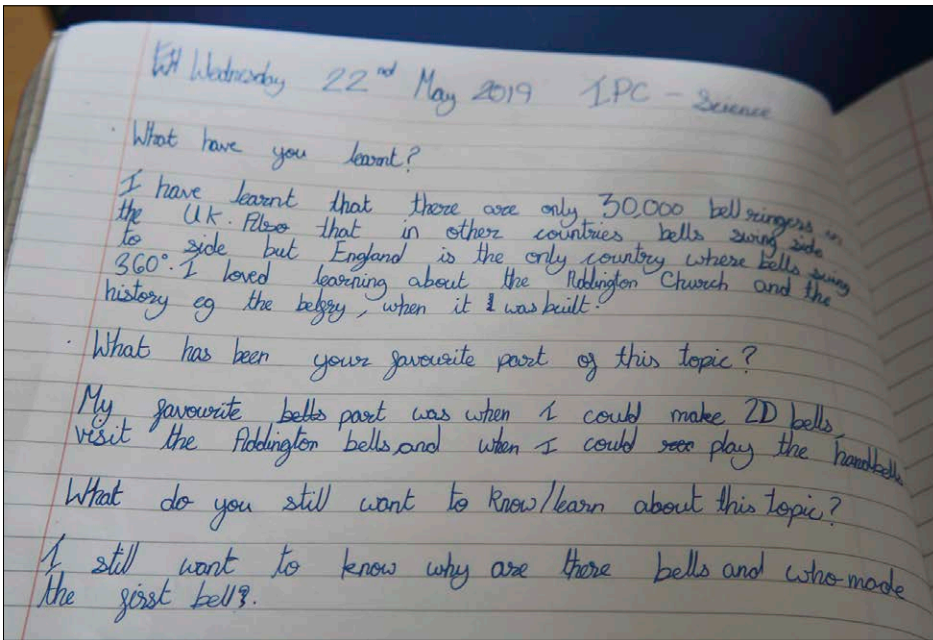 Wednesday 22nd May 2019 IPC - Science
What have you learnt?
I have learnt that there are only 30,000 bell ringers in
the UK. Also that in other countries bells swing side
to side but England is the only country where bells swing
360°. I loved learning about the Addington Church and the
history eg the belfry, when it was built.
What has been your favourite part of this topic?
My favourite part was when I could make 2D bells,
visit the Addington bells, and when I could play the handbells
What do you still want to know/learn about this topic?
I still want to know why are there bells and who made
the first bell?.